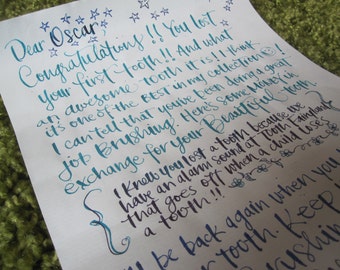 Dear Oscar,
Congratulations!! You lost
your first tooth!! And what
an awesome tooth it is!! I think
it's one of the best in my collection!!
I can tell that you've been doing a great
job brushing. Here's some in
exchange for your beautiful tooth
I knew you lost a tooth because we
have an alarm sound at tooth
that goes off when a child loses
a tooth!!
I'll be back again when you
tooth. Keep